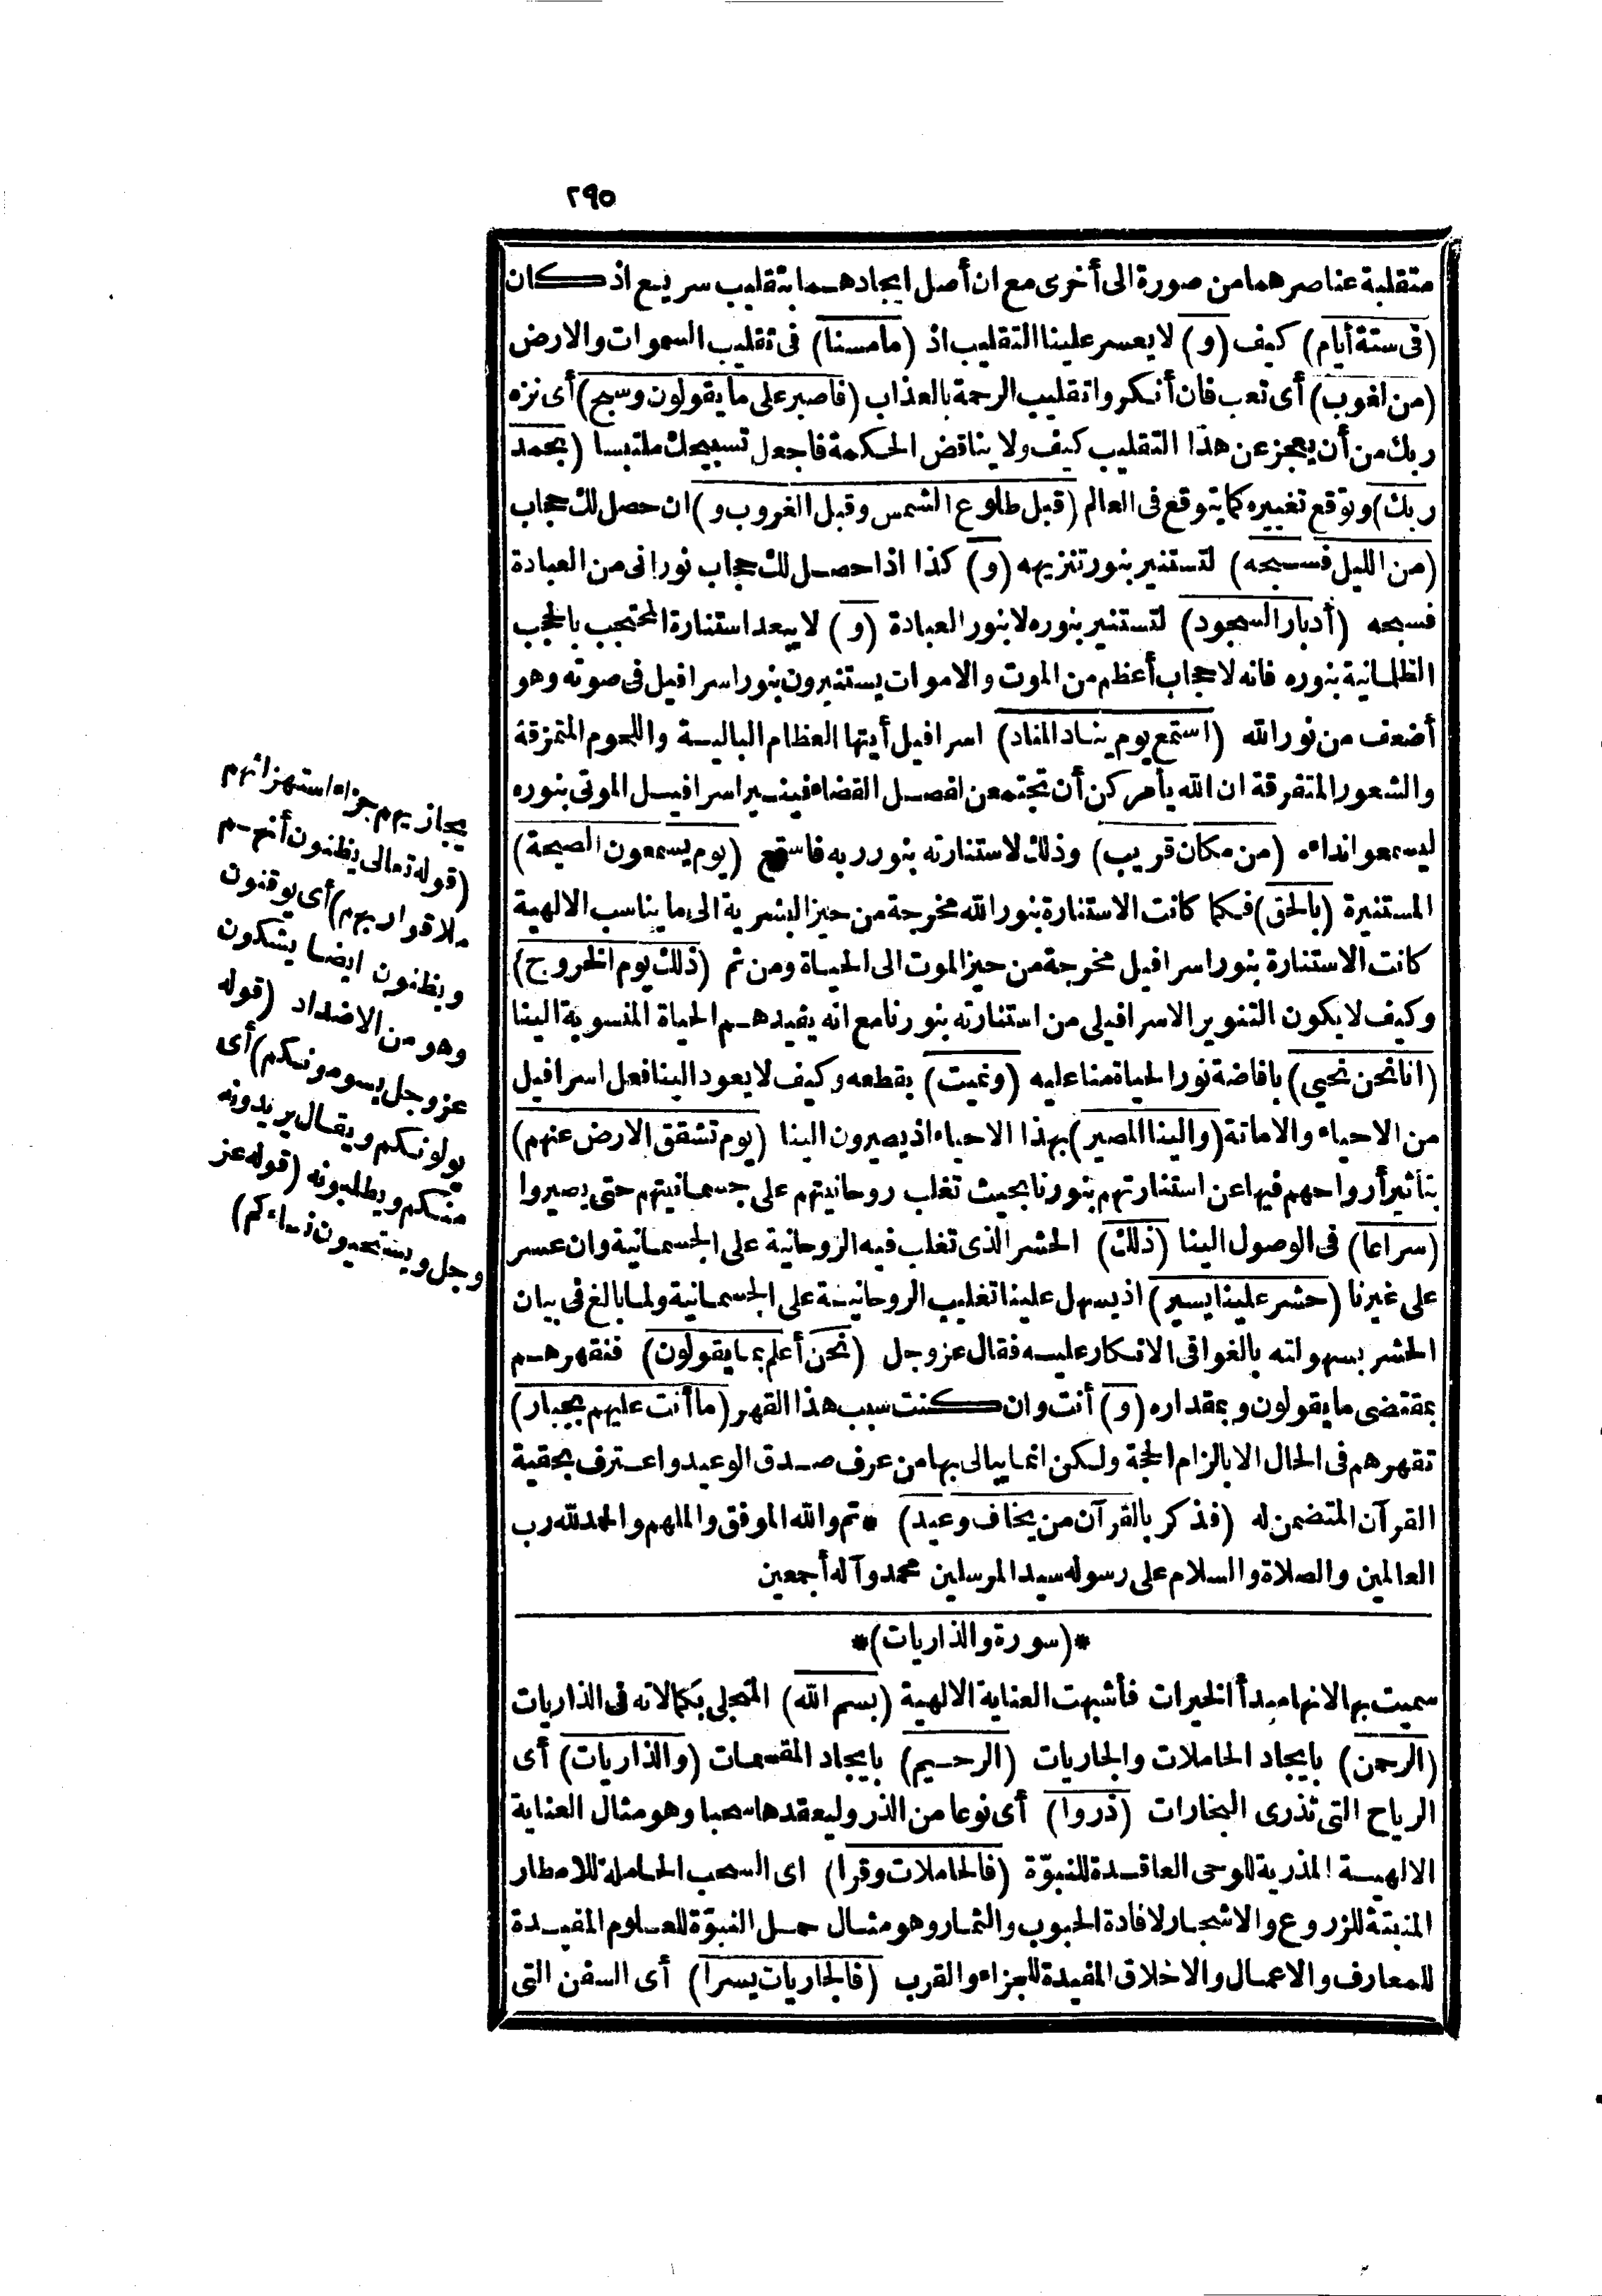 ٢٩٥
متقلبة عناصرهما من صورة الى أخرى مع ان أصل ايجادهما بتقليب سريع اذ كان
(فى ستة أيام) كيف (و) لا يعسر علينا التقليب اذ (مامسنا) فى تقليب السموات والارض
(من لغوب) أى تعب فان أنكروا تقليب الرحمة بالعذاب (فاصبر على ما يقولون وسبح) أى نزه
ربك من أن يعجز عن هذا التقليب كيف ولا يناقض الحكمة فاجعل تسبيحك ملتبسا (بحمد
ربك) وتوقع تغييره كما يتوقع فى العالم (قبل طلوع الشمس وقبل الغروب و) ان حصل لك حجاب
(من الليل فسبحه) لتستنير بنور تنزيهه (و) كذا اذا حصل لك حجاب نورانى من العبادة
فسبحه (أدبار السجود) لتستنير بنوره لا بنور العبادة (و) لا يبعد استنارة المحتجب بالحجب
الظلمانية بنوره فانه لا حجاب أعظم من الموت والاموات يستنيرون بنور اسرافيل فى صوته وهو
أضعف من نور الله (استمع يوم يناد المناد) اسرافيل أيتها العظام البالية واللحوم المتمزقة
والشعور المتفرقة ان الله يأمركن أن تجتمعن لفصل القضاء فينير اسرافيل الموتى بنوره
ليسمعوا نداءه (من مكان قريب) وذلك لاستنارته بنور ربه فاسمع (يوم يسمعون الصيحة)
المستنيرة (بالحق) فكما كانت الاستنارة بنور الله مخرجة من حيز البشرية الى ما يناسب الالهية
كانت الاستنارة بنور اسرافيل مخرجة من حيز الموت الى الحياة ومن ثم (ذلك يوم الخروج)
وكيف لا يكون التنوير الاسرافيلى من استنارته بنورنا مع انه يفيدهم الحياة المنسوبة الينا
(انا نحن نحيي) بافاضة نور الحياة منا عليه (ونميت) بقطعه وكيف لا يعود الينا فعل اسرافيل
من الاحياء والاماتة (والينا المصير) بهذا الاحياء اذ يصيرون الينا (يوم تشقق الارض عنهم)
بتأثير أرواحهم فيها عن استنارتهم بنورنا بحيث تغلب روحانيتهم على جسمانيتهم حتى يصيروا
(سراعا) فى الوصول الينا (ذلك) الحشر الذى تغلب فيه الروحانية على الجسمانية وان عسر
على غيرنا (حشر علينا يسير) اذ يسهل علينا تغليب الروحانية على الجسمانية ولما بالغ فى بيان
الحشر بسهولته بالغوا فى الانكار عليه فقال عز وجل (نحن أعلم بما يقولون) فنقهرهم
بمقتضى ما يقولون وبمقداره (و) أنت وان كنت سبب هذا القهر (ما أنت عليهم بجبار)
تقهرهم فى الحال الا بالزام الحجة ولكن انما يبالى بها من عرف صدق الوعيد واعترف بحقية
القرآن المتضمن له (فذكر بالقرآن من يخاف وعيد) * تم والله الموفق والملهم والحمد لله رب
العالمين والصلاة والسلام على رسوله سيد المرسلين محمد وآله أجمعين
*(سورة والذاريات)*
سميت بها لانها مبدأ الخيرات فأشبهت العناية الالهية (بسم الله) المتجلى بكمالاته فى الذاريات
(الرحمن) بايجاد الحاملات والجاريات (الرحيم) بايجاد المقسمات (والذاريات) أى
الرياح التى تذرى البخارات (ذروا) أى نوعا من الذرو ليعقدها سحبا وهو مثال العناية
الالهية المذرية للوحى العاقدة للنبوّة (فالحاملات وقرا) اى السحب الحاملة للامطار
المنبتة للزروع والاشجار لافادة الحبوب والثمار وهو مثال حمل النبوّة للعلوم المفيدة
للمعارف والاعمال والاخلاق المفيدة للجزاء والقرب (فالجاريات يسرا) أى السفن التى
يجازيهم جزاء استهزائهم
(قوله تعالى يظنون أنهم
ملاقوا ربهم) أى يوقنون
ويظنون ايضا يشكون
وهو من الاضداد (قوله
عز وجل يسومونكم) أى
يولونكم ويقال يريدونه
منكم ويطلبونه (قوله عز
وجل ويستحيون نساءكم)